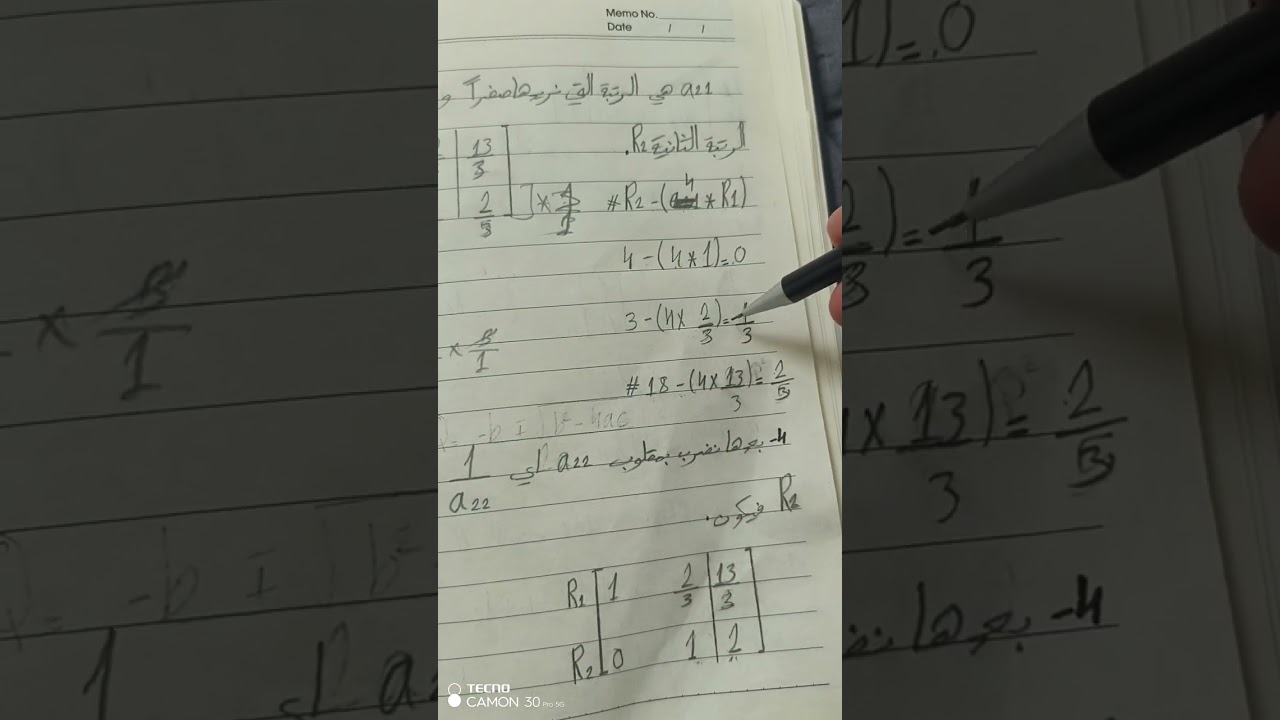 Memo No.
Date / /
a21 هي الرتبة التي نريدها صفراً و
الرتبة الثانية R2.
13/3
2/3
# R2 - (4 * R1)
4 - (4 * 1) = 0
3 - (4 × 2/3) = 1/3
× 3/1
# 18 - (4 × 13/3) = 2/3
= -b ± √b² - 4ac
4- بعدها نضرب بمقلوب a22 اي 1/a22
R2 فيكون.
R1 [ 1 2/3 | 13/3 ]
R2 [ 0 1 | 2 ]
TECNO
CAMON 30 Pro 5G